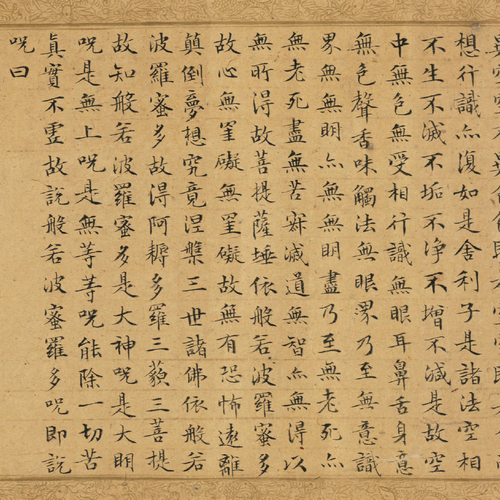 想行識亦復如是舍利子是諸法空相
不生不滅不垢不淨不增不減是故空
中無色無受相行識無眼耳鼻舌身意
無色聲香味觸法無眼界乃至無意識
界無無明亦無無明盡乃至無老死亦
無老死盡無苦寂滅道無智亦無得以
無所得故菩提薩埵依般若波羅蜜多
故心無罣礙無罣礙故無有恐怖遠離
顛倒夢想究竟涅槃三世諸佛依般若
波羅蜜多故得阿耨多羅三藐三菩提
故知般若波羅蜜多是大神咒是大明
咒是無上咒是無等等咒能除一切苦
真實不虛故說般若波蜜羅多咒即說
咒曰